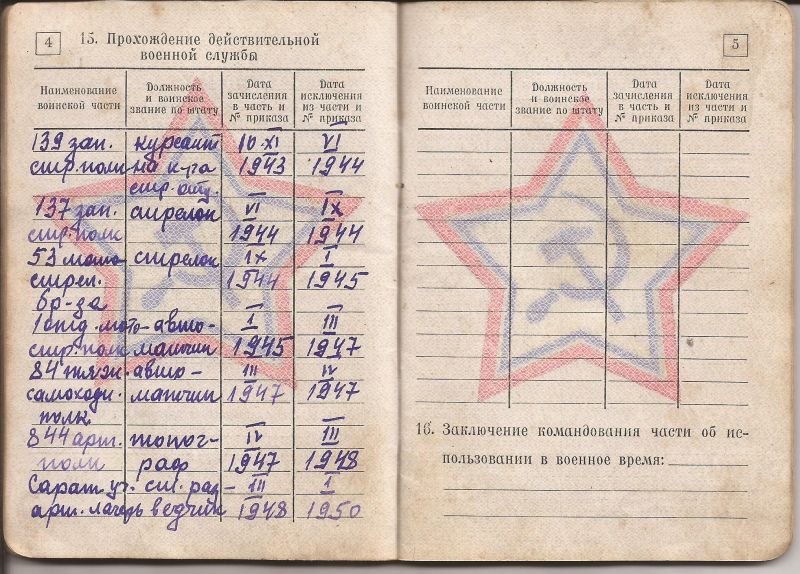 4
15. Прохождение действительной
военной службы
Наименование воинской части
Должность и воинское звание по штату
Дата зачисления в часть и № приказа
Дата исключения из части и № приказа
139 зап. курсант 10-XI VI
стр. полк на к-ра 1943 1944
стр. отд.
137 зап. стрелок VI IX
стр. полк 1944 1944
53 мото- стрелок IX I
стрел. 1944 1945
бр-да
1 мото- авто- I III
стр. полк матчик 1945 1947
84 тяж. авто- III IV
самоходн. матчик 1947 1947
полк
844 арт. топог- IV III
полк раф 1947 1948
Сарат. уч. ст. раз- III I
арт. лагерь ведчик 1948 1950
5
Наименование воинской части
Должность и воинское звание по штату
Дата зачисления в часть и № приказа
Дата исключения из части и № приказа
16. Заключение командования части об ис-
пользовании в военное время: